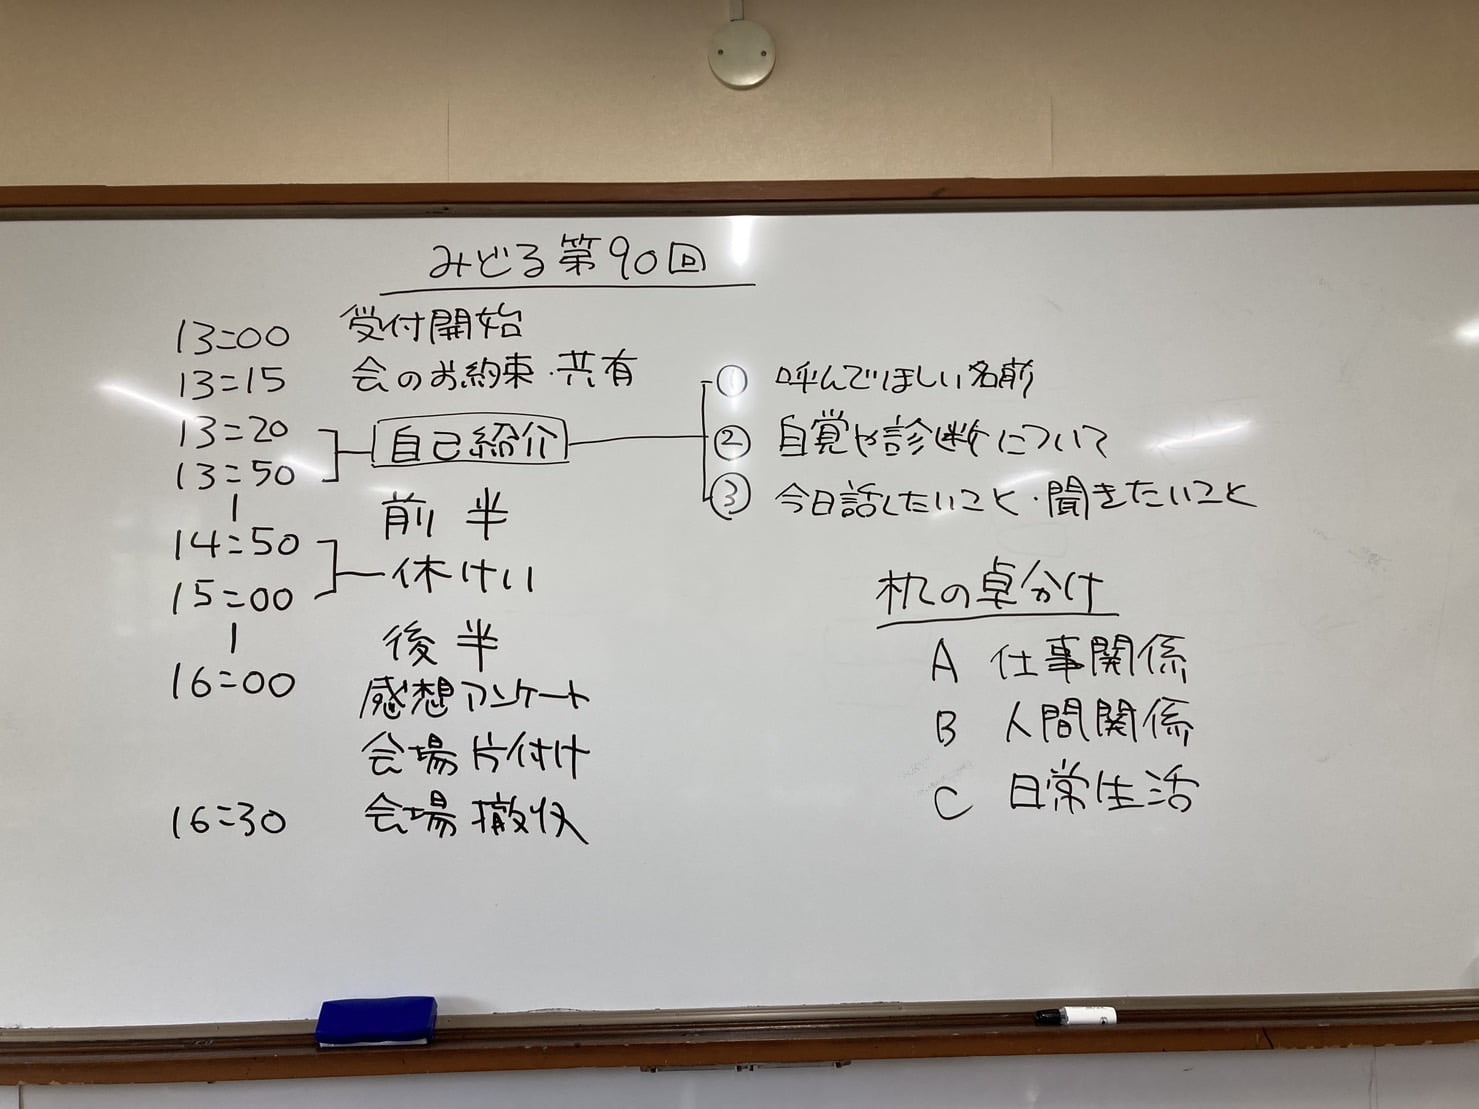 みどる第90回
13:00 受付開始
13:15 会のお約束・共有
13:20
13:50
自己紹介
① 呼んでほしい名前
② 自覚や診断について
③ 今日話したいこと・聞きたいこと
前半
14:50
15:00
休けい
後半
16:00 感想アンケート
会場片付け
16:30 会場撤収
机の卓分け
A 仕事関係
B 人間関係
C 日常生活